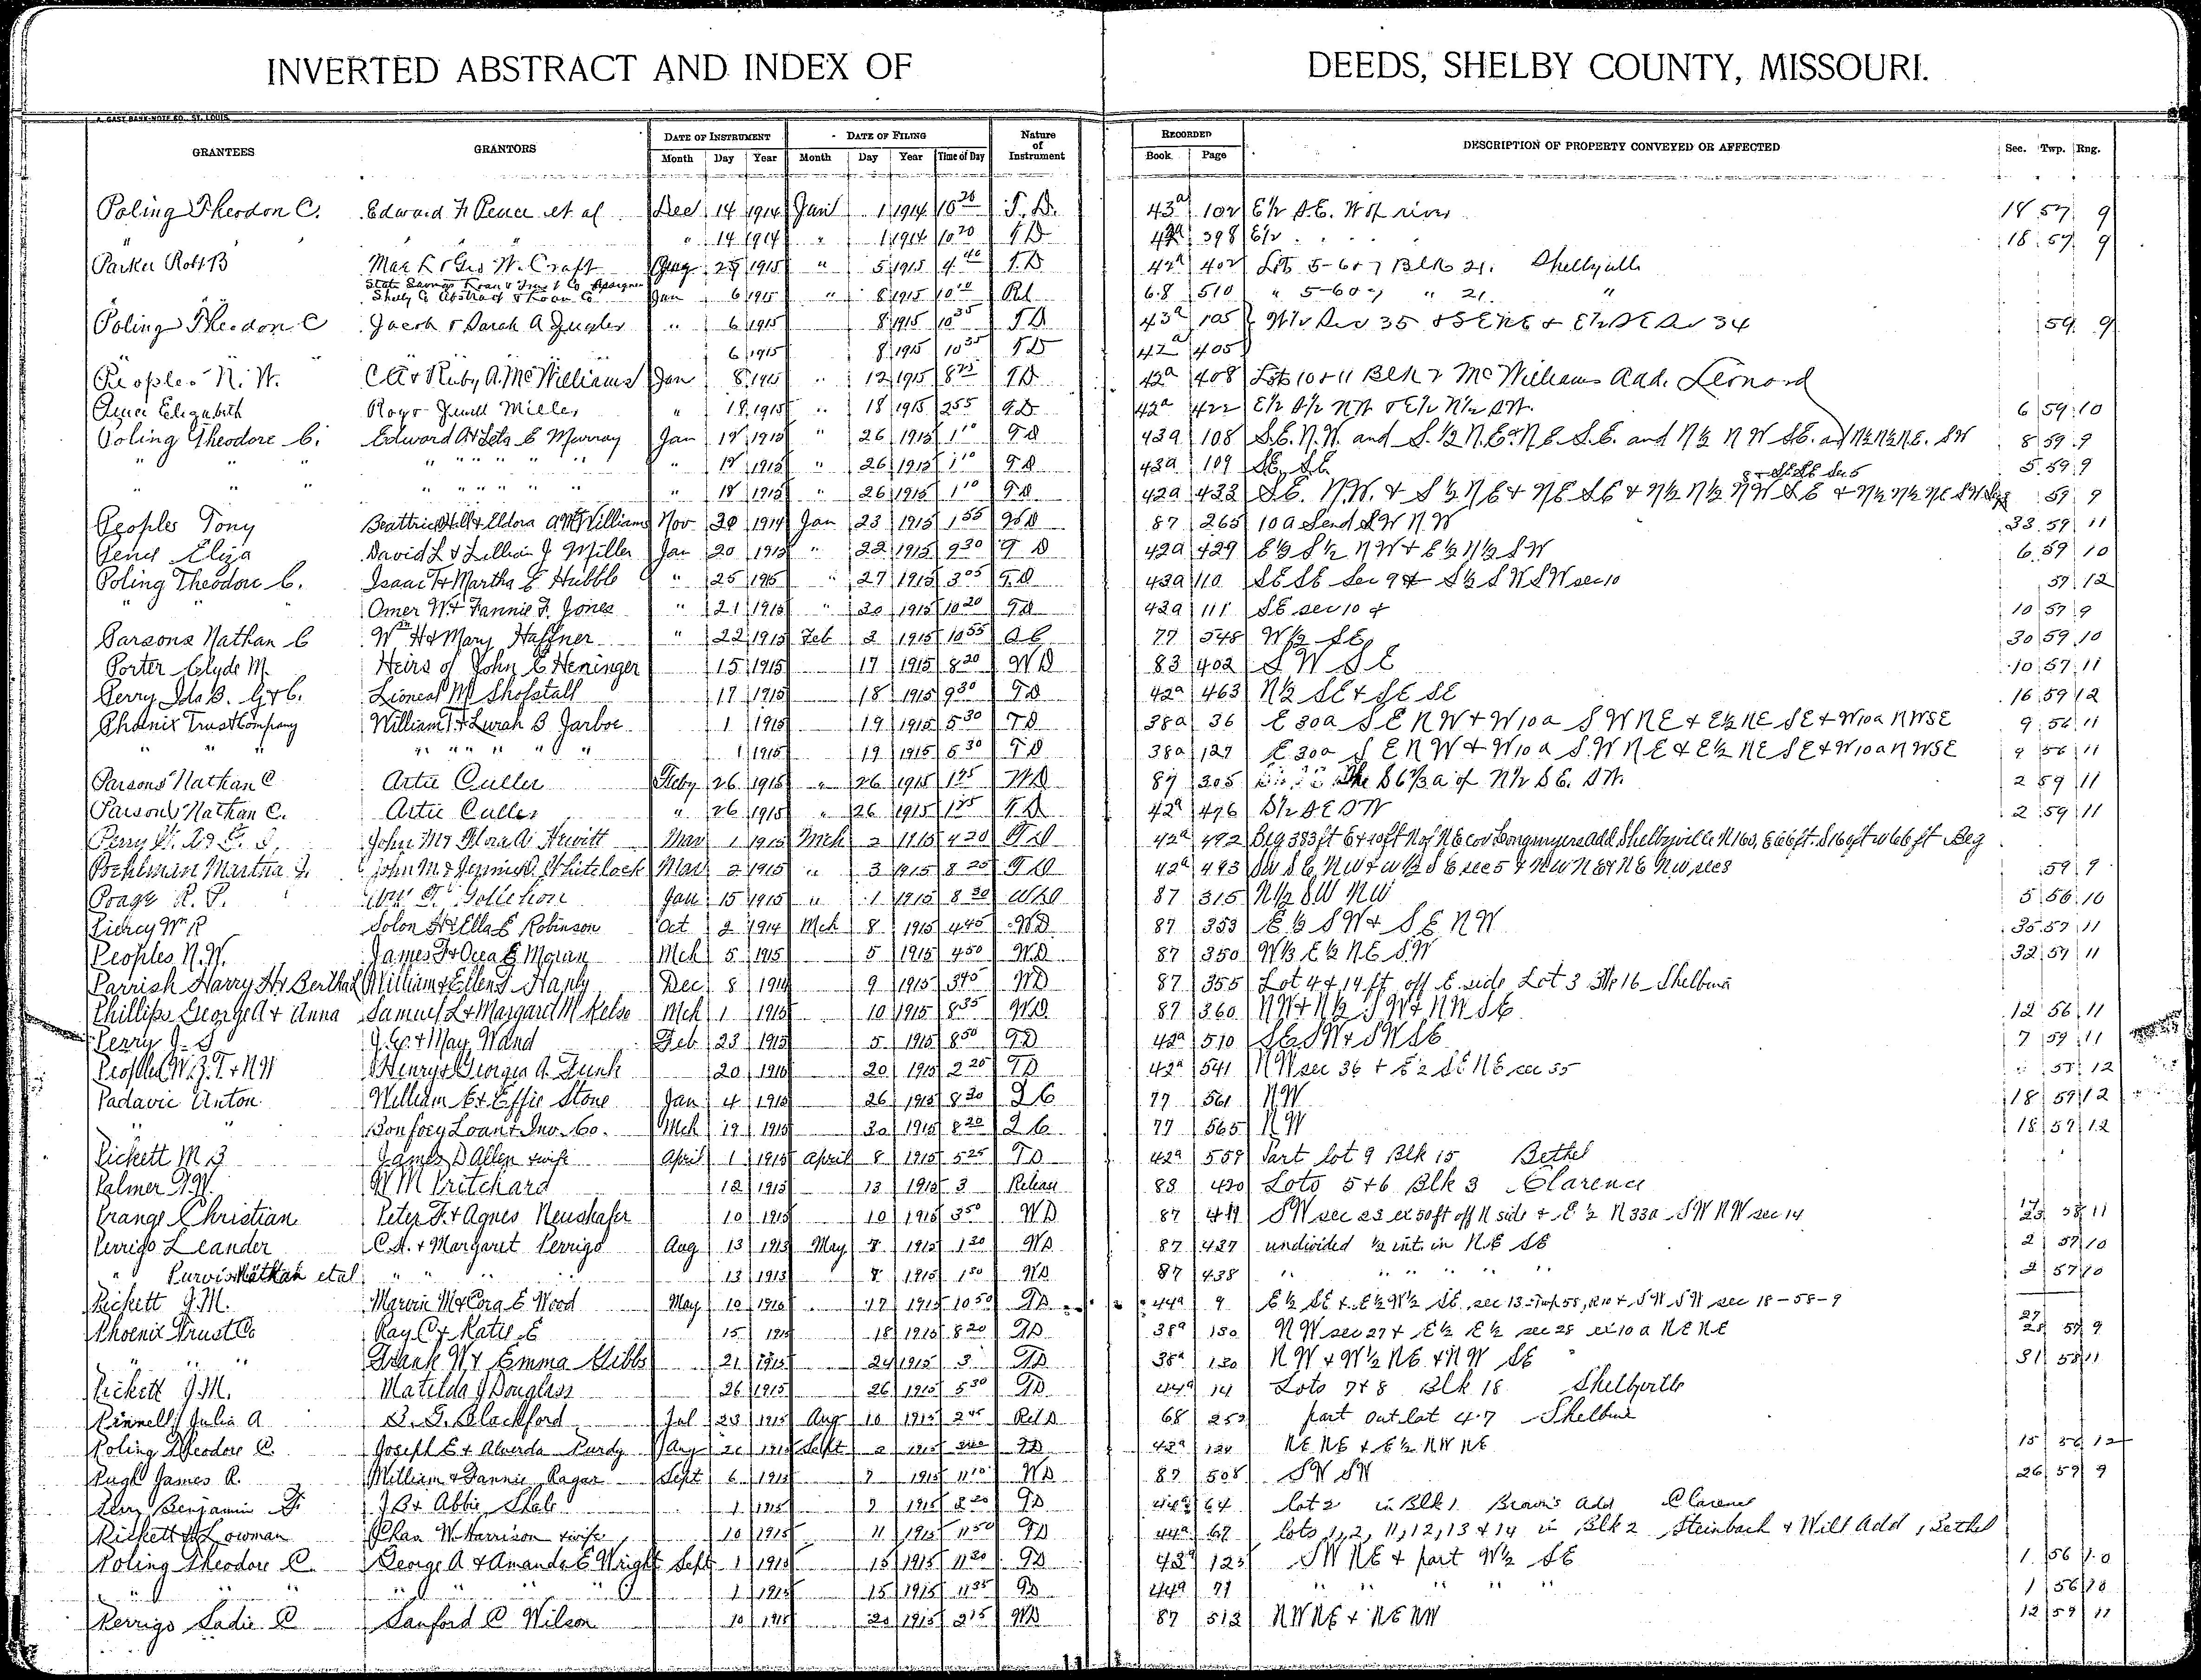 INVERTED ABSTRACT AND INDEX OF DEEDS, SHELBY COUNTY, MISSOURI.
A. GAST BANK-NOTE CO., ST. LOUIS.
GRANTEES GRANTORS DATE OF INSTRUMENT DATE OF FILING Nature of Instrument RECORDED DESCRIPTION OF PROPERTY CONVEYED OR AFFECTED Sec. Twp. Rng.
Month Day Year Month Day Year Time of Day Book Page
Poling Theodon C. Edward F. Pence et al Dec 14 1914 Jan 1 1914 T.D. 43a 102 E½ S.E. W of river 18 57 9
" " " 14 1914 " 1 1914 10 20 T D 42a 398 E½ " " 18 57 9
Parker Robt B Mae L & Geo W. Craft 1915 " 5 1915 4 40 T.D 42a 402 Lots 5-6 & 7 Blk 21. Shelbyville
State Savings Loan & Trust Co Assignee
Shelby Co Abstract & Loan Co Jan 6 1915 " 8 1915 10 10 Rel 68 510 " 5-6 & 7 " 21 "
Poling Theodon C Jacob & Sarah A " 6 1915 8 1915 10 35 T D 43a 105 W½ Sec 35 & S E NE & E½ SE Sec 34 59 9
" " 6 1915 8 1915 10 35 T D 42a 405
Peoples N. W. C A & Ruby A. McWilliams Jan 8 1915 " 12 1915 8 25 T D 42a 408 Lots 10 & 11 Blk 2 McWilliams Add. Leonard
Pence Elizabeth Roy & Jewell Miller " 18 1915 " 18 1915 2 55 T D 42a 422 E½ S½ NW & E½ N½ SW. 6 59 10
Poling Theodore C. Edward A & Leta E Murray Jan 18 1915 " 26 1915 1 10 T D 43a 108 S.E. N.W. and S. ½ N.E. & N.E. S.E. and N½ N W S.E. and N½ N½ N.E. SW 8 59 9
" " " " " " " " " 18 1915 " 26 1915 1 10 T D 43a 109 SE, SE 5 59 9
" " " " " " " " " 18 1915 " 26 1915 1 10 T D 42a 433 S.E. N.W. & S ½ N E & N E S E & N½ N½ N W S E & N½ N½ N E S W Sec 8 & SE SE Sec 5 59 9
Peoples Tony Beattrice Hill & Eldora A McWilliams Nov 30 1914 Jan 23 1915 1 55 WD 87 265 10 a S end S W N.W 33 59 11
Pence Eliza David L & Lillian J Miller Jan 20 1915 " 22 1915 9 30 T D 42a 429 E ½ S ½ N W & E ½ N ½ S W 6 59 10
Poling Theodore C. Isaac F & Martha E Hubble " 25 1915 " 27 1915 3 05 T.D 43a 110 S E S E Sec 9 & S ½ S W S W sec 10 57 12
" " Omer W & Fannie F. Jones " 21 1915 " 30 1915 10 20 T D 43a 111 S E sec 10 & 10 57 9
Parsons Nathan C Wm H & Mary Haffner " 22 1915 Feb 2 1915 10 55 Q C 77 548 W½ SE 30 59 10
Porter Clyde M. Heirs of John C Heninger 15 1915 17 1915 8 20 W D 83 402 S W S E 10 57 11
Perry Ida B. Lioneal M Shofstall 17 1915 18 1915 9 30 T D 42a 463 N½ SE & SE SE 16 59 12
Phoenix Trust Company William T & Lurah B Jarboe 1 1915 19 1915 5 30 T D 38a 36 E 30a S E N W & W 10 a S W N E & E ½ NE S E & W 10 a N W S E 9 56 11
" " " " " " " " 1 1915 19 1915 5 30 T D 38a 127 E 30a S E N W & W 10 a S W N E & E ½ NE S E & W 10 a N W S E 9 56 11
Parsons Nathan C Artie Culler Feby 26 1915 " 26 1915 1 25 WD 87 305 The S 6⅔ a of N½ S E. S W. 2 59 11
Parsons Nathan C. Artie Culler " 26 1915 " 26 1915 1 25 T D 42a 476 S½ S E S W 2 59 11
John M & Flora A Hewitt Mar 1 1915 Mch 2 1915 4 20 T D 42a 492 Beg 383 ft E & 40 ft N of N E cor add. Shelbyville N 160, E 66 ft. S 160 ft W 66 ft Beg
Pochlman Martha J. John M & Jennie A. Whitelock Mar 2 1915 " 3 1915 8 25 T D 42a 493 59 9
Poage R. P. Gollihon Jan 15 1915 " 1 1915 8 30 W D 87 315 N½ SW NW 5 56 10
Piercy Wm R Solon H & Ella E Robinson Oct 2 1914 Mch 8 1915 4 45 WD 87 353 E ½ S W & S E N W 35 57 11
Peoples N.W. James F & Ocea E Moran Mch 5 1915 5 1915 4 50 WD 87 350 W½ E ½ NE S.W 32 59 11
Parrish Harry H & Bertha William & Ellen F Hanly Dec 8 1914 9 1915 3 45 WD 87 355 Lot 4 & 14 ft off E. side Lot 3 Blk 16 Shelbina
Phillips George A & Anna Samuel L & Margaret M Kelso Mch 1 1915 10 1915 8 35 WD 87 360 NW & N½ S W & N W S E 12 56 11
Perry J. S J. C. & May Wand Feb 23 1915 5 1915 8 50 T D 42a 510 S E S W & S W S E 7 59 11
Peoples W. Z. T & N W Henry & Georgia A. Funk 20 1915 20 1915 2 25 T D 42a 541 N W sec 36 & E ½ S E N E sec 35 58 12
Padavic Anton William E & Effie Stone Jan 4 1915 26 1915 8 20 Q C 77 561 N W 18 57 12
" " Bonfoey Loan & Inv. Co. Mch 19 1915 30 1915 8 20 Q C 77 565 N W 18 57 12
Pickett M J James D Allen & wife April 1 1915 April 8 1915 5 25 T D 42a 559 Part lot 9 Blk 15 Bethel
Palmer W M Pritchard 12 1915 13 1915 3 Release 83 420 Lots 5 & 6 Blk 3 Clarence
Prange Christian Peter F. & Agnes Neushafer 10 1915 10 1915 3 50 W D 87 S W sec 23 ex 50 ft off N side & E ½ N 33 a S W N W sec 14 14 23 58 11
Perrigo Leander C. A. & Margaret Perrigo Aug 13 1913 May 7 1915 1 30 WD 87 437 undivided ½ int. in N E S E 2 57 10
" Purvis Nathan et al " " 13 1913 7 1915 1 50 WD 87 438 " " " " " 2 57 10
Pickett J. M. Marvin M & Cora E Wood May 10 1915 17 1915 10 50 T D 44a 9 E ½ S E & E ½ W ½ S E. sec 13 - Twp 58, R 10 & S W S W sec 18-58-9
Phoenix Trust Co Ray C & Katie E 15 1915 18 1915 8 20 T D 38a 130 N W sec 27 & E ½ E ½ sec 28 ex 10 a N E N E 27 28 57 9
" " Frank W & Emma Gibbs 21 1915 24 1915 3 T D 38a 130 N W & W ½ N E & N W S E 31 58 11
Pickett J. M. Matilda J Douglass 26 1915 26 1915 5 30 T D 44a 14 Lots 7 & 8 Blk 18 Shelbyville
Pinnell, Julia A Blackford Jul 23 1915 Aug 10 1915 2 45 Rel D 68 part out lot 47 Shelbina
Poling Theodore C. Joseph E & Alverda Purdy Aug 1915 Sept 2 1915 T D NE NE & E ½ N W NE 15 56 12
Pugh James R. William & Fannie Ragar Sept 6 1915 7 1915 11 10 W D 87 508 S W S W 26 59 9
Perry Benjamin F J B & Abbie 1 1915 9 1915 8 20 T D 44a 64 lot 2 in Blk 1 Brown's add Clarence
Pickett & Lowman Chas W. Harrison & wife 10 1915 11 1915 11 50 T D 44a 67 lots 1, 2, 11, 12, 13 & 14 in Blk 2 Steinbach & Will Add, Bethel
Poling Theodore C. George A & Amanda E Wright Sept 1 1915 15 1915 11 30 T D 43a 123 S W N E & part W ½ S E 1 56 10
" " " " " " 1 1915 15 1915 11 35 T D 44a 71 " " " " " 1 56 10
Perrigo Sadie C Sanford C Wilson 10 1915 20 1915 2 15 WD 87 513 N W N E & N E N W 12 59 11